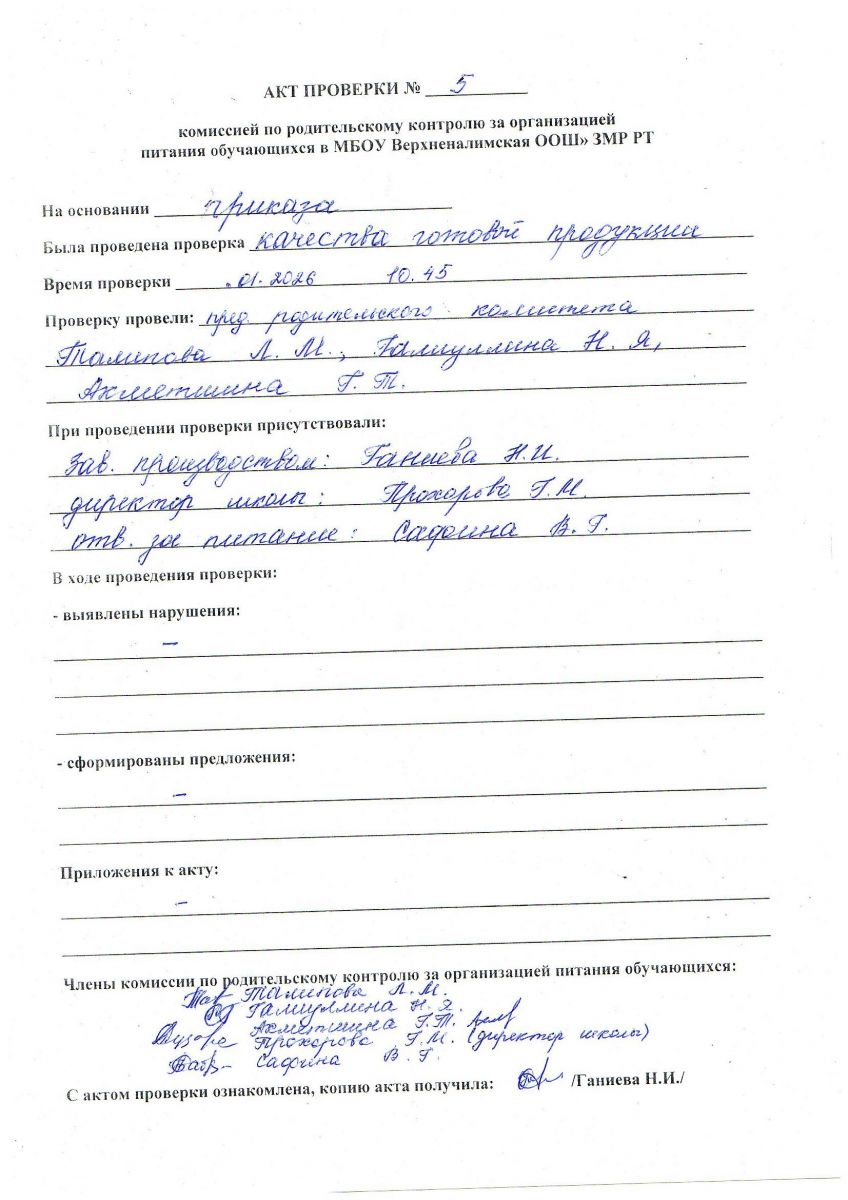 АКТ ПРОВЕРКИ № 5
комиссией по родительскому контролю за организацией
питания обучающихся в МБОУ Верхненалимская ООШ» ЗМР РТ
На основании приказа
Была проведена проверка качества готовой продукции
Время проверки .01.2026 10.45
Проверку провели: пред. родительского комитета
Талипова Л. М., Галиуллина Н. Я,
Ахметшина Г. Т.
При проведении проверки присутствовали:
Зав. производством: Ганиева Н.И.
директор школы: Прохорова Г.М.
отв. за питание: Сафина В. Г.
В ходе проведения проверки:
- выявлены нарушения:
–
- сформированы предложения:
–
Приложения к акту:
–
Члены комиссии по родительскому контролю за организацией питания обучающихся:
Талипова Л. М.
Галиуллина Н. Я.
Ахметшина Г.Т.
Прохорова Г.М. (директор школы)
Сафина В. Г.
С актом проверки ознакомлена, копию акта получила: /Ганиева Н.И./